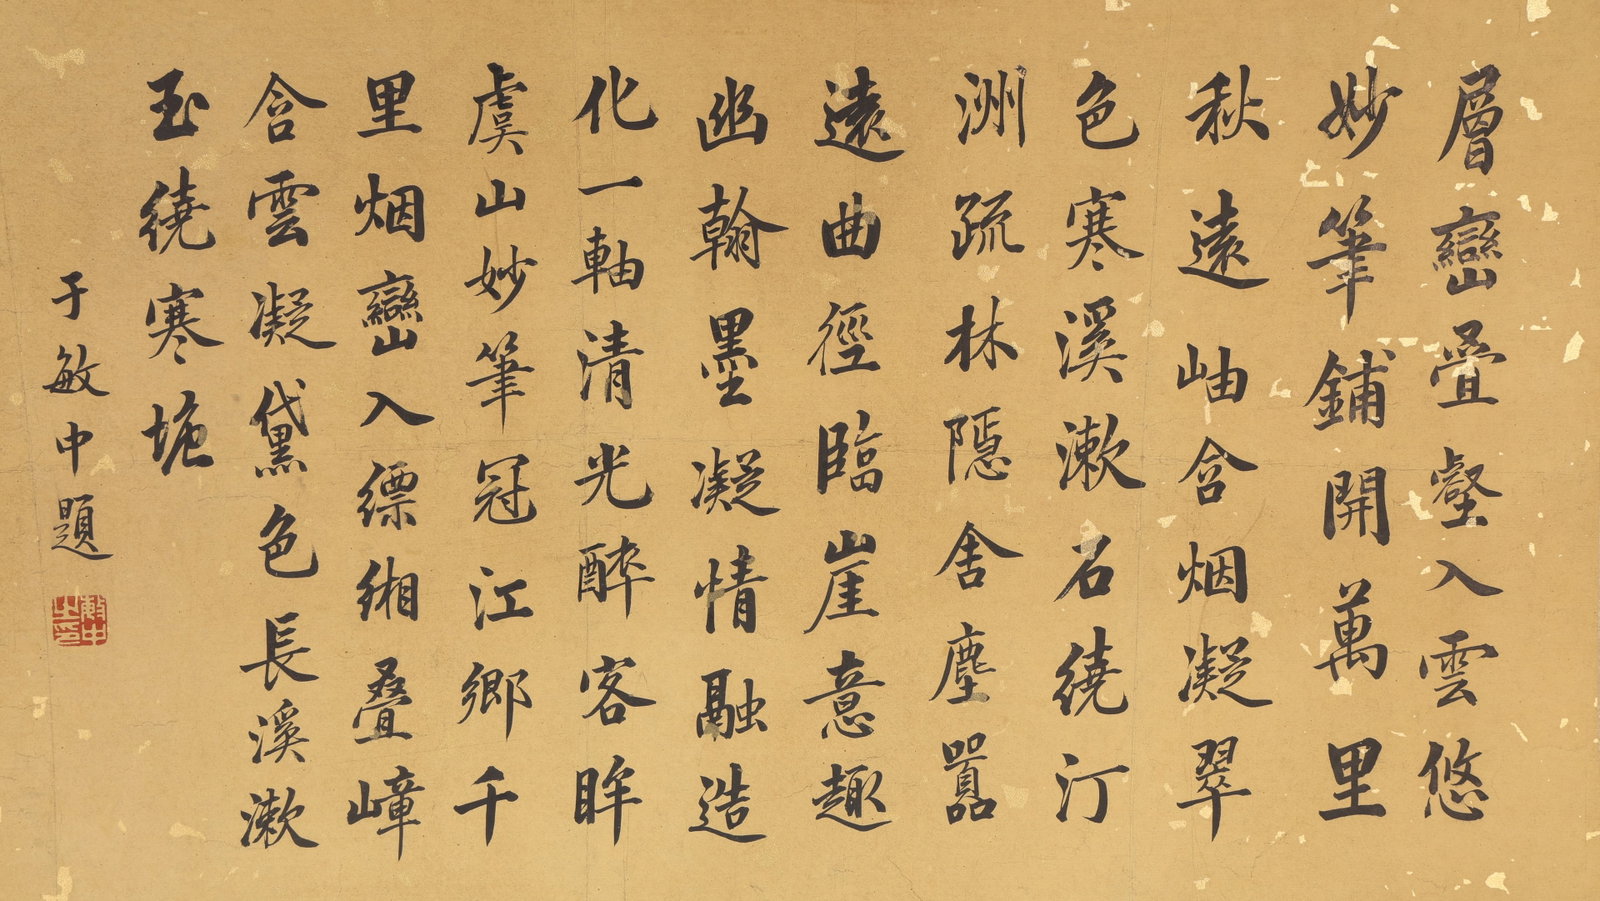 層巒疊壑入雲悠
妙筆鋪開萬里
秋遠岫含烟凝翠
色寒溪漱石繞汀
洲疏林隱舍塵囂
遠曲徑臨崖意趣
幽翰墨凝情融造
化一軸清光醉客眸
虞山妙筆冠江鄉千
里烟巒入縹緗疊嶂
含雲凝黛色長溪漱
玉繞寒塘
于敏中題
敏中之印